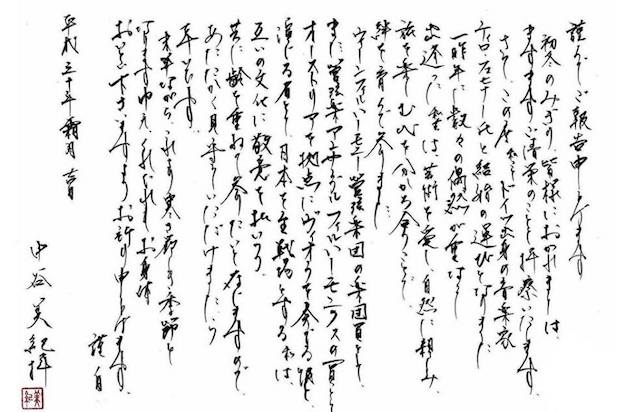 謹んでご報告申し上げます
初冬のみぎり、皆様におかれましては、
ますますご清栄のことと拝察いたします。
さて、この度 ドイツ出身の音楽家
ティロ・フェヒナー氏と結婚の運びとなりました
一昨年に数々の偶然が重なって
出逢った は、芸術を愛し、自然に親しみ、
旅を楽しむひとときを分かち合うことで
絆を育んで参りました
ウィーンフィルハーモニー管弦楽団の楽団員として
また管弦楽アンサンブル フィルハーモニクスの一員として
オーストリアを拠点にヴィオラを奏でる彼と
演じる者として日本を主戦場とする私は、
互いの文化に敬意を払いつつ
共に齢を重ねて参りたいと存じますので
あたたかく見守っていただけましたら
幸いです。
末筆ながら、これより寒さ厳しき季節と
なりますゆえ、くれぐれもお身体
おいとい下さいますようお祈り申し上げます。
謹白
平成三十年霜月吉日
中谷美紀拝
美紀